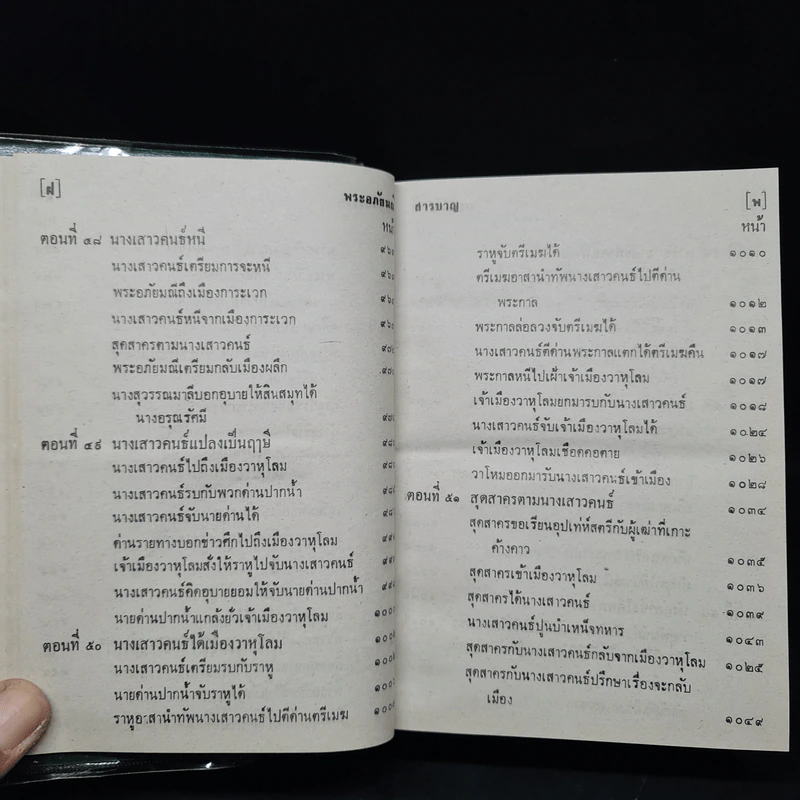 [ฝ]
พระอภัยมณี
หน้า
ตอนที่ ๔๘ นางเสาวคนธ์หนี
นางเสาวคนธ์เตรียมการจะหนี
พระอภัยมณีถึงเมืองการะเวก
นางเสาวคนธ์หนีจากเมืองการะเวก
สุดสาครตามนางเสาวคนธ์
พระอภัยมณีเตรียมกลับเมืองผลึก
นางสุวรรณมาลีบอกอุบายให้สินสมุทได้
นางอรุณรัศมี
ตอนที่ ๔๙ นางเสาวคนธ์แปลงเป็นฤาษี
นางเสาวคนธ์ไปถึงเมืองวาหุโลม
นางเสาวคนธ์รบกับพวกด่านปากน้ำ
นางเสาวคนธ์จับนายด่านได้
ด่านรายทางบอกข่าวศึกไปถึงเมืองวาหุโลม
เจ้าเมืองวาหุโลมสั่งให้ราหูไปจับนางเสาวคนธ์
นางเสาวคนธ์คิดอุบายยอมให้จับนายด่านปากน้ำ
นายด่านปากน้ำแกล้งยั่วเจ้าเมืองวาหุโลม
ตอนที่ ๕๐ นางเสาวคนธ์ได้เมืองวาหุโลม
นางเสาวคนธ์เตรียมรบกับราหู
นายด่านปากน้ำจับราหูได้
ราหูอาสานำทัพนางเสาวคนธ์ไปตีด่านตรีเมฆ
สารบาญ
[พ]
หน้า
ราหูจับตรีเมฆได้ ๑๐๑๐
ตรีเมฆอาสานำทัพนางเสาวคนธ์ไปตีด่าน
พระกาล ๑๐๑๒
พระกาลล่อลวงจับตรีเมฆได้ ๑๐๑๓
นางเสาวคนธ์ตีด่านพระกาลแตกได้ตรีเมฆคืน ๑๐๑๗
พระกาลหนีไปเฝ้าเจ้าเมืองวาหุโลม ๑๐๑๗
เจ้าเมืองวาหุโลมยกมารบกับนางเสาวคนธ์ ๑๐๑๘
นางเสาวคนธ์จับเจ้าเมืองวาหุโลมได้ ๑๐๒๔
เจ้าเมืองวาหุโลมเชือดคอตาย ๑๐๒๖
วาโหมออกมารับนางเสาวคนธ์เข้าเมือง ๑๐๒๘
ตอนที่ ๕๑ สุดสาครตามนางเสาวคนธ์ ๑๐๓๔
สุดสาครขอเรียนอุปเท่ห์สตรีกับผู้เฒ่าที่เกาะ
ค้างคาว ๑๐๓๕
สุดสาครเข้าเมืองวาหุโลม ๑๐๓๖
สุดสาครได้นางเสาวคนธ์ ๑๐๓๙
นางเสาวคนธ์ปูนบำเหน็จทหาร ๑๐๔๓
สุดสาครกับนางเสาวคนธ์กลับจากเมืองวาหุโลม ๑๐๒๕
สุดสาครกับนางเสาวคนธ์ปรึกษาเรื่องจะกลับ
เมือง ๑๐๔๙